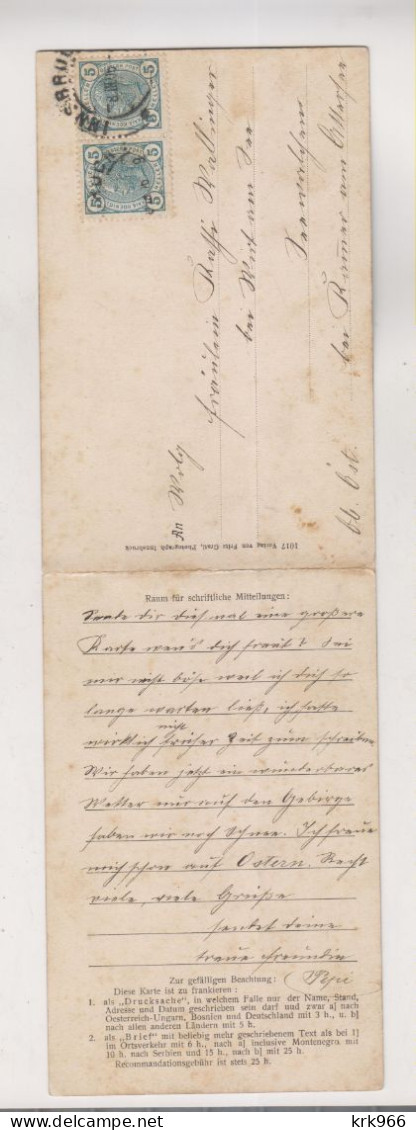 INNSBRUCK
5 5
5 5
An Wolg
Fräulein Kathi Wallinger
bei Wirt am See
Seewalchen
bei Kammer am Attersee
Ob. Öst.
1017 Verlag von Fritz Gratl, Photograph, Innsbruck
Raum für schriftliche Mitteilungen:
Sende dir dies mal eine größere
Karte wen's dich freut? Sei
mir nicht böse weil ich dich so
lange warten ließ, ich hatte
nicht
wirklich früher Zeit zum schreiben
Wir haben jetzt ein wunderbares
Wetter nur auf den Gebirge
haben wir noch Schnee. Ich freue
mich schon auf Ostern. Recht
viele, viele Grüße
sendet deine
treue Freundin
Pepi
Zur gefälligen Beachtung:
Diese Karte ist zu frankieren:
1. als „Drucksache", in welchem Falle nur der Name, Stand,
Adresse und Datum geschrieben sein darf und zwar a] nach
Oesterreich-Ungarn, Bosnien und Deutschland mit 3 h., u. b]
nach allen anderen Ländern mit 5 h.
2. als „Brief" mit beliebig mehr geschriebenem Text als bei 1]
im Ortsverkehr mit 6 h., nach a] inclusive Montenegro mit
10 h. nach Serbien und 15 h., nach b] mit 25 h.
Recommandationsgebühr ist stets 25 h.
delcampe.net
krk966